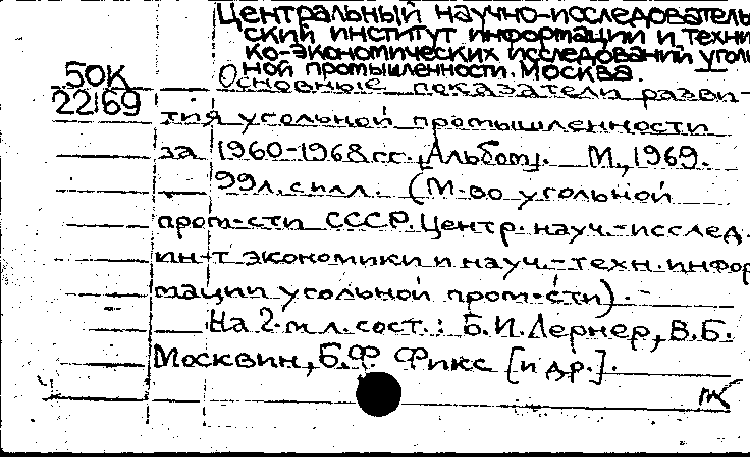 Центральный научно-исследователь
ский институт информации и техни
ко-экономических исследований уголь
ной промышленности. Москва.
50К
22169
Основные показатели разви-
тия угольной промышленности
за 1960-1968гг. [Альбом]. М., 1969.
99л. с илл. (М-во угольной
пром-сти СССР. Центр. науч.-исслед.
ин-т экономики и науч.-техн. инфор
мации угольной пром-сти).
На 2-м л. сост.: Б.И. Лернер, В.Б.
Москвин, Б.Ф. Фикс [и др.].